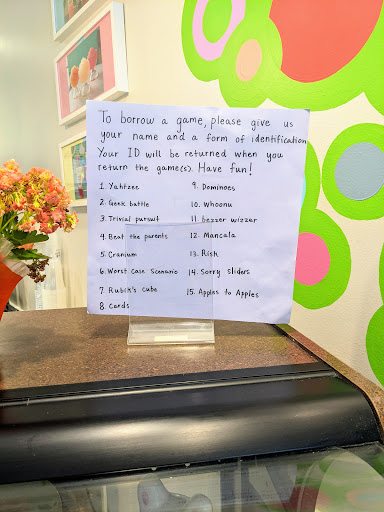 To borrow a game, please give us
your name and a form of identification
Your ID will be returned when you
return the game(s). Have fun!
1. Yahtzee
2. Geek battle
3. Trivial pursuit
4. Beat the parents
5. Cranium
6. Worst Case Scenario
7. Rubik's cube
8 Cards
9. Dominoes
10. Whoonu
11. bezzer wizzer
12. Mancala
13. Risk
14. Sorry Sliders
15. Apples to Apples